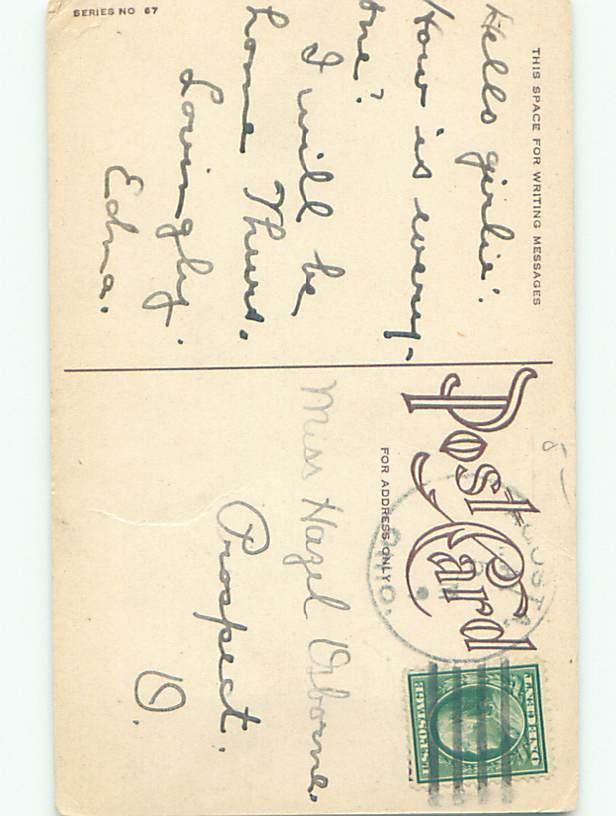 SERIES NO 67
THIS SPACE FOR WRITING MESSAGES
Hello girlie!
How is every-
one?
I will be
home Thurs.
Lovingly.
Edna.
Post Card
FOR ADDRESS ONLY
OHIO.
Miss Hazel Osborne.
Prospect.
O.
UNITED
U.S. POSTAGE